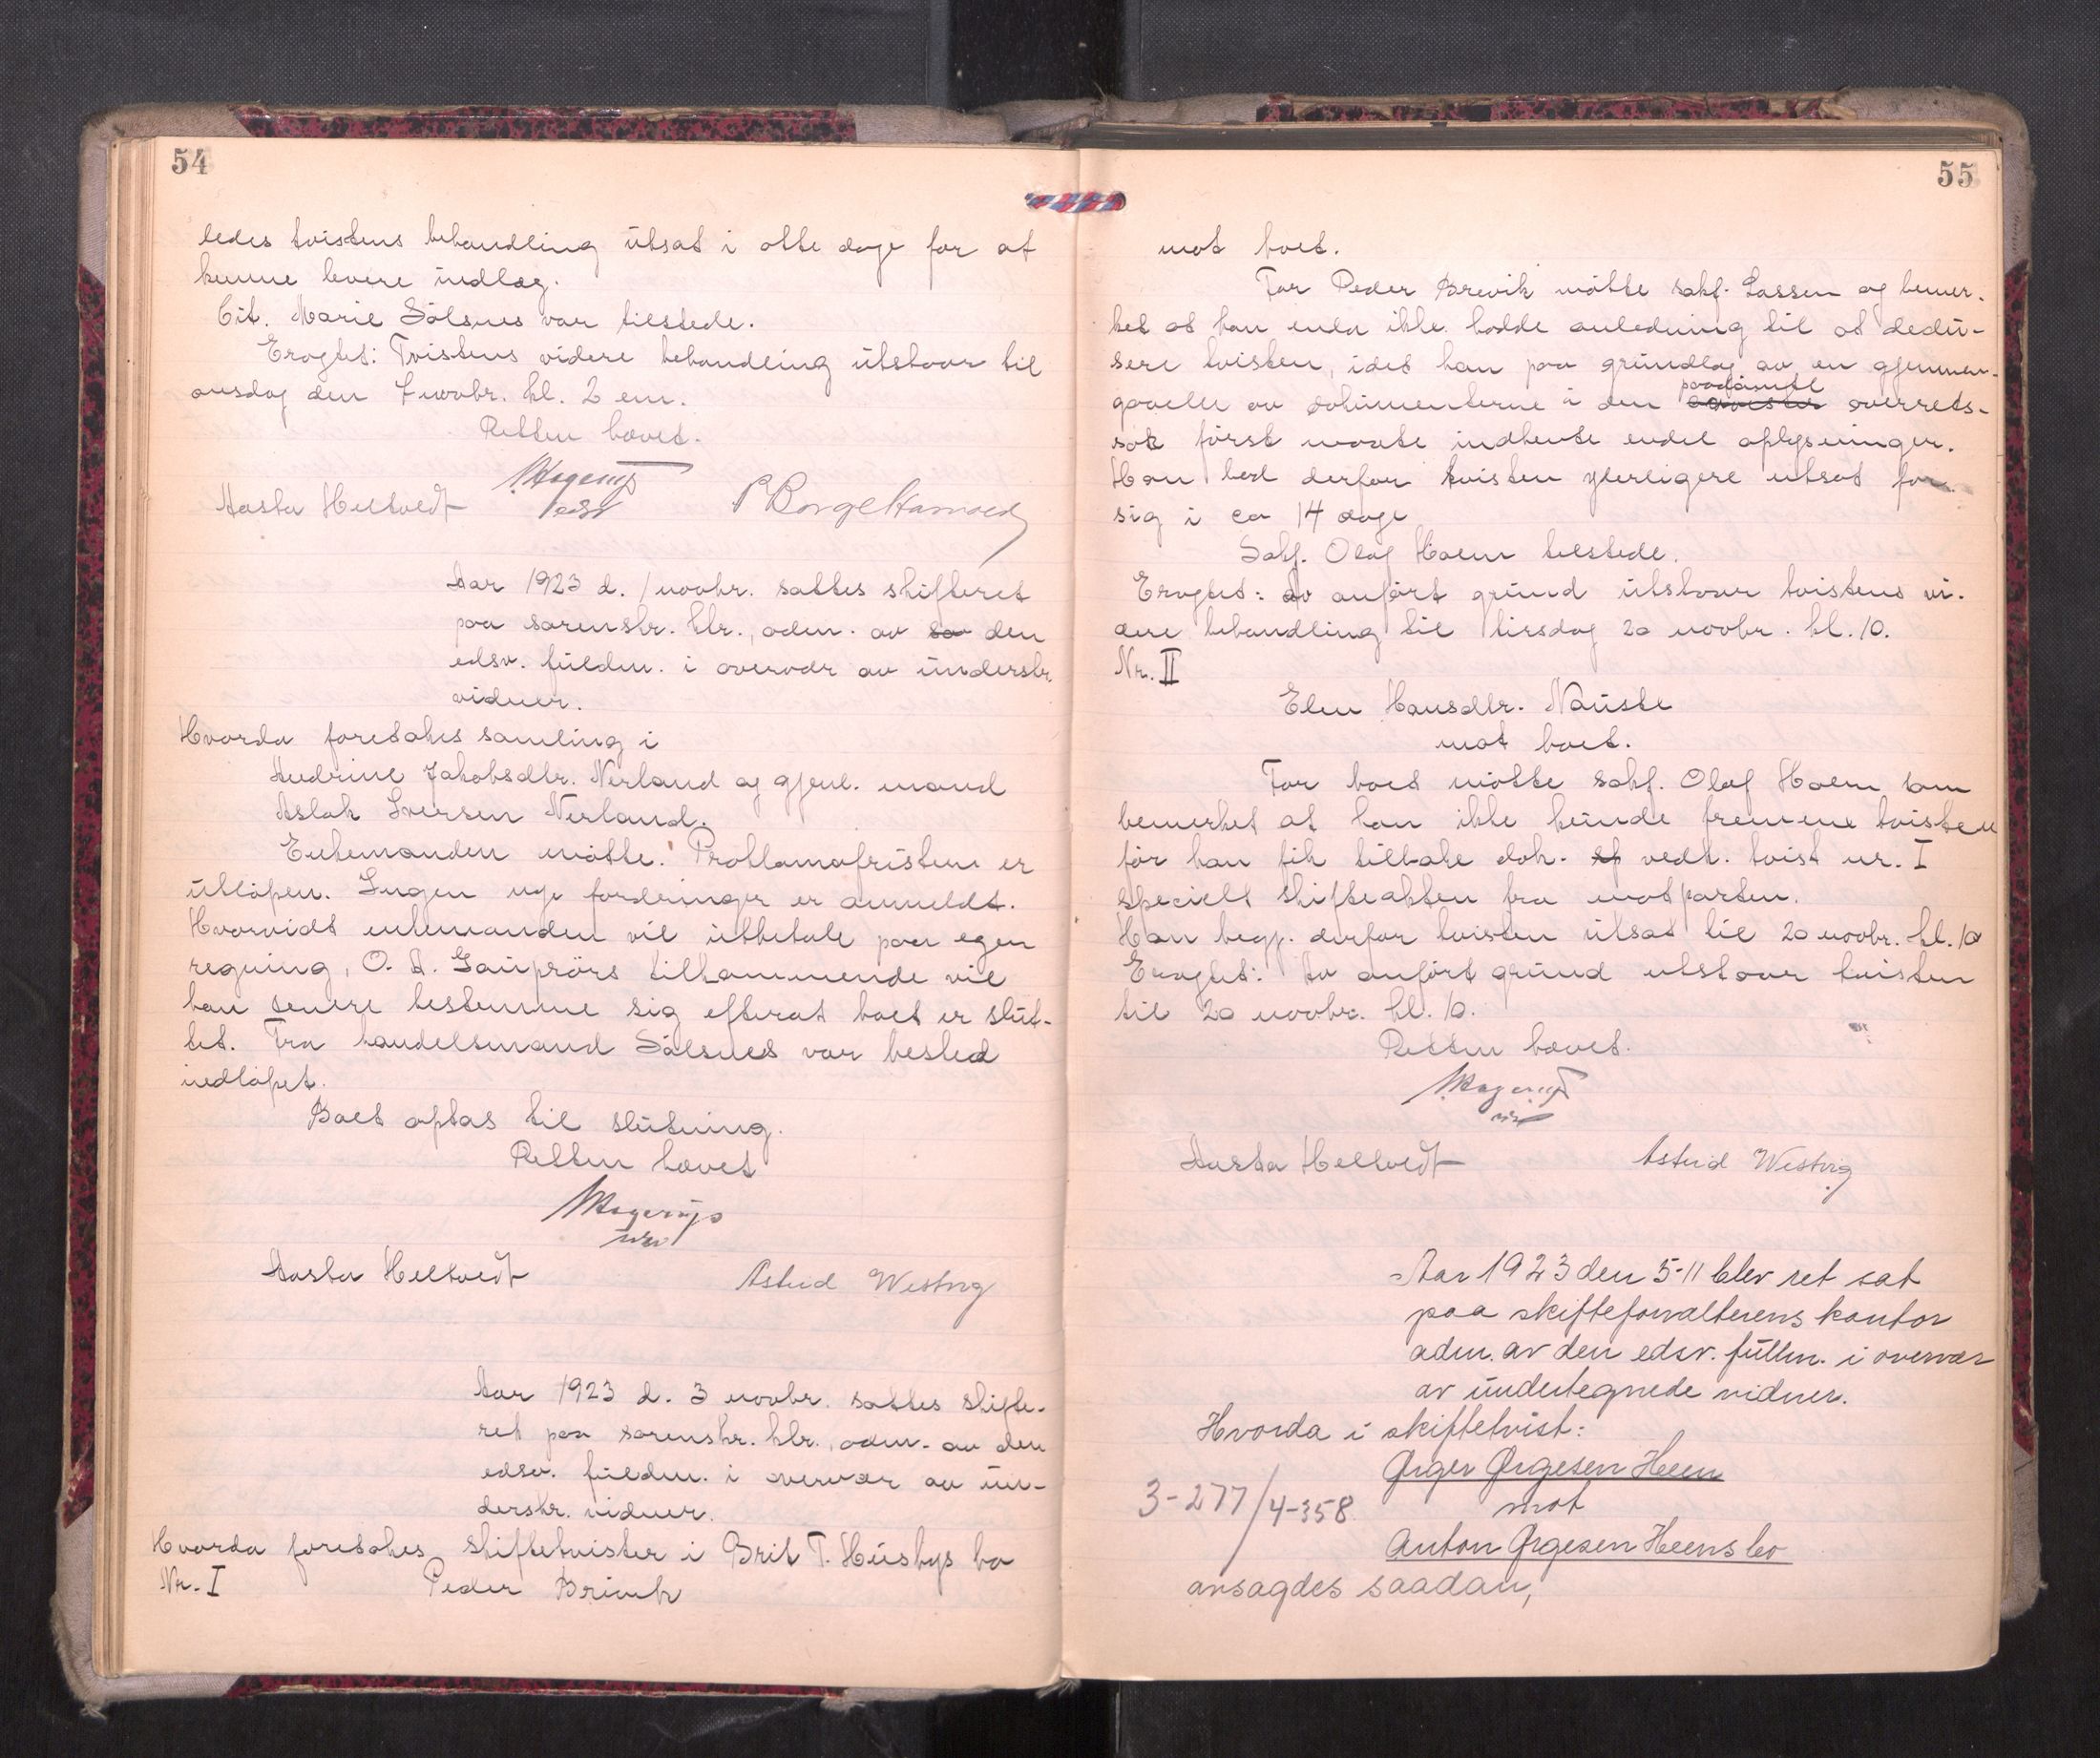 54
ledes tvistens behandling utsat i otte dage for at
kunne levere indlæg.
Cit. Marie Sølsnes var tilstede.
Eragtet: Tvistens videre behandling utstaar til
onsdag den 7 novbr. kl. 2 em.
Retten hævet.
Hagerup
edsv
Aasta Heltvedt P Borge Hamvold
Aar 1923 d. 1 novbr. sattes skifteret
paa sorenskr. ktr., adm. av so den
edsv. fuldm. i overvær av underskr.
vidner.
Hvorda foretokes samling i
Andrine Jakobsdtr. Nerland og gjenl. mand
Aslak Iversen Nerland.
Enkemanden møtte. Proklamafristen er
utløpen. Ingen nye fordringer er anmeldt.
Hvorvidt enkemanden vil utbetale paa egen
regning, O. A. Gauprørs tilkommende vil
han senere bestemme sig efterat boet er slut-
tet. Fra handelsmand Sølsnes var besked
indløpet.
Boet optas til slutning.
Retten hævet
Hagerup
Aasta Heltvedt Astrid Westvig
Aar 1923 d. 3 novbr. sattes skifte-
ret paa sorenskr. ktr., adm. av den
edsv. fuldm. i overvær av un-
derskr. vidner.
Hvorda foretokes skiftetvister i Brit T. Husbys bo
Nr. I Peder Brivik
55
mot boet.
For Peder Brevik møtte sakf. Lassen og bemer-
ket at han enda ikke hadde anledning til at dedu-
sere tvisten, idet han paa grundlag av en gjennem-
paadømte
gaaelse av dokumenterne i den overrets-
sak først maate indhente endel oplysninger.
Han bad derfor tvisten yterligere utsat for
sig i ca 14 dage
Sakf. Olaf Hoem tilstede.
Eragtet: Av anført grund utstaar tvistens vi-
dere behandling til tirsdag 20 novbr. kl. 10.
Nr. II
Elen Hansdtr. Nauste
mot boet.
For boet møtte sakf. Olaf Hoem som
bemerket at han ikke kunde fremme tvisten
før han fik tilbake dok. vedk. tvist nr. I
specielt skifteakten fra motparten.
Han begj. derfor tvisten utsat til 20 novbr. kl. 10
Eragtet: Av anført grund utstaar tvisten
til 20 novbr. kl. 10.
Retten hævet.
Hagerup
Aasta Heltvedt Astrid Westvig
Aar 1923 den 5-11 blev ret sat
paa skifteforvalterens kontor
adm. av den edsv. fullm. i overvær
av undertegnede vidner.
Hvorda i skiftetvist:
Ørger Ørgesen Heen
3-277/4-358 mot
Anton Ørgesen Heens bo
avsagdes saadan,